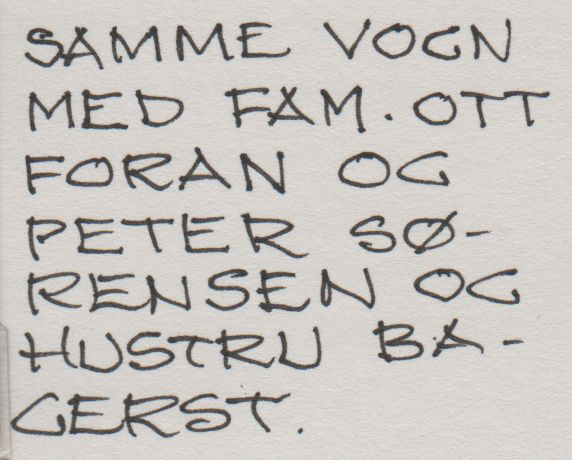 SAMME VOGN
MED FAM. OTT
FORAN OG
PETER SØ-
RENSEN OG
HUSTRU BA-
GERST.